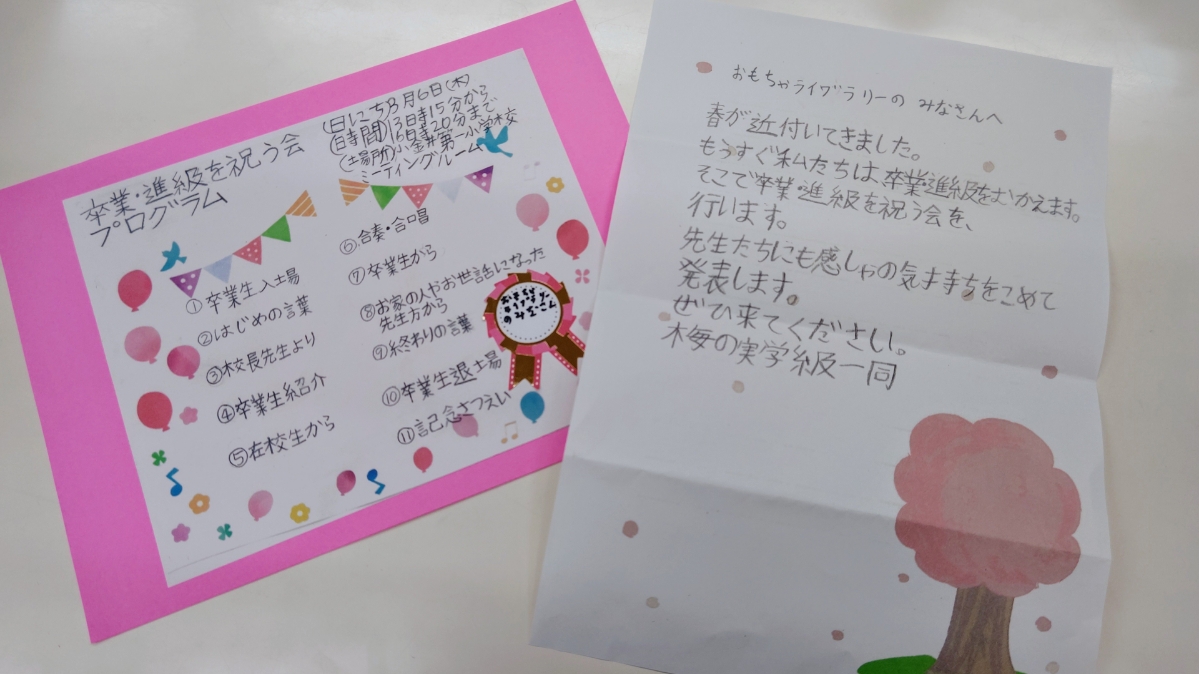 卒業・進級を祝う会
プログラム
(日にち)3月6日(木)
(日時間)13時15分から
16時20分まで
(場所)小金井第一小学校
ミーティングルーム
①卒業生入場
②はじめの言葉
③校長先生より
④卒業生紹介
⑤在校生から
⑥合奏・合唱
⑦卒業生から
⑧お家の人やお世話になった
先生方から
⑨終わりの言葉
⑩卒業生退場
⑪記念さつえい
おもちゃ
ライブラリー
のみなさん
おもちゃライヴラリーの みなさんへ
春が近付いてきました。
もうすぐ私たちは、卒業・進級をむかえます。
そこで卒業・進級を祝う会を、
行います。
先生たちにも感しゃの気持ちをこめて
発表します。
ぜひ来てください。
梅の実学級一同